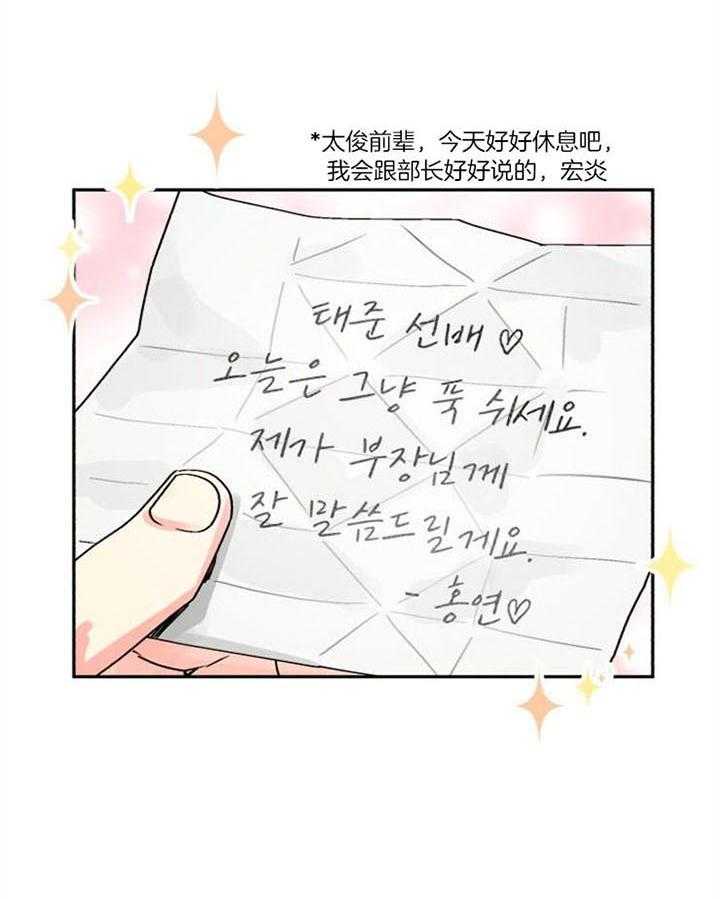 *太俊前辈，今天好好休息吧，
我会跟部长好好说的，宏炎
태준 선배♡
오늘은 그냥 푹 쉬세요.
제가 부장님께
잘 말씀드릴게요.
- 홍연♡